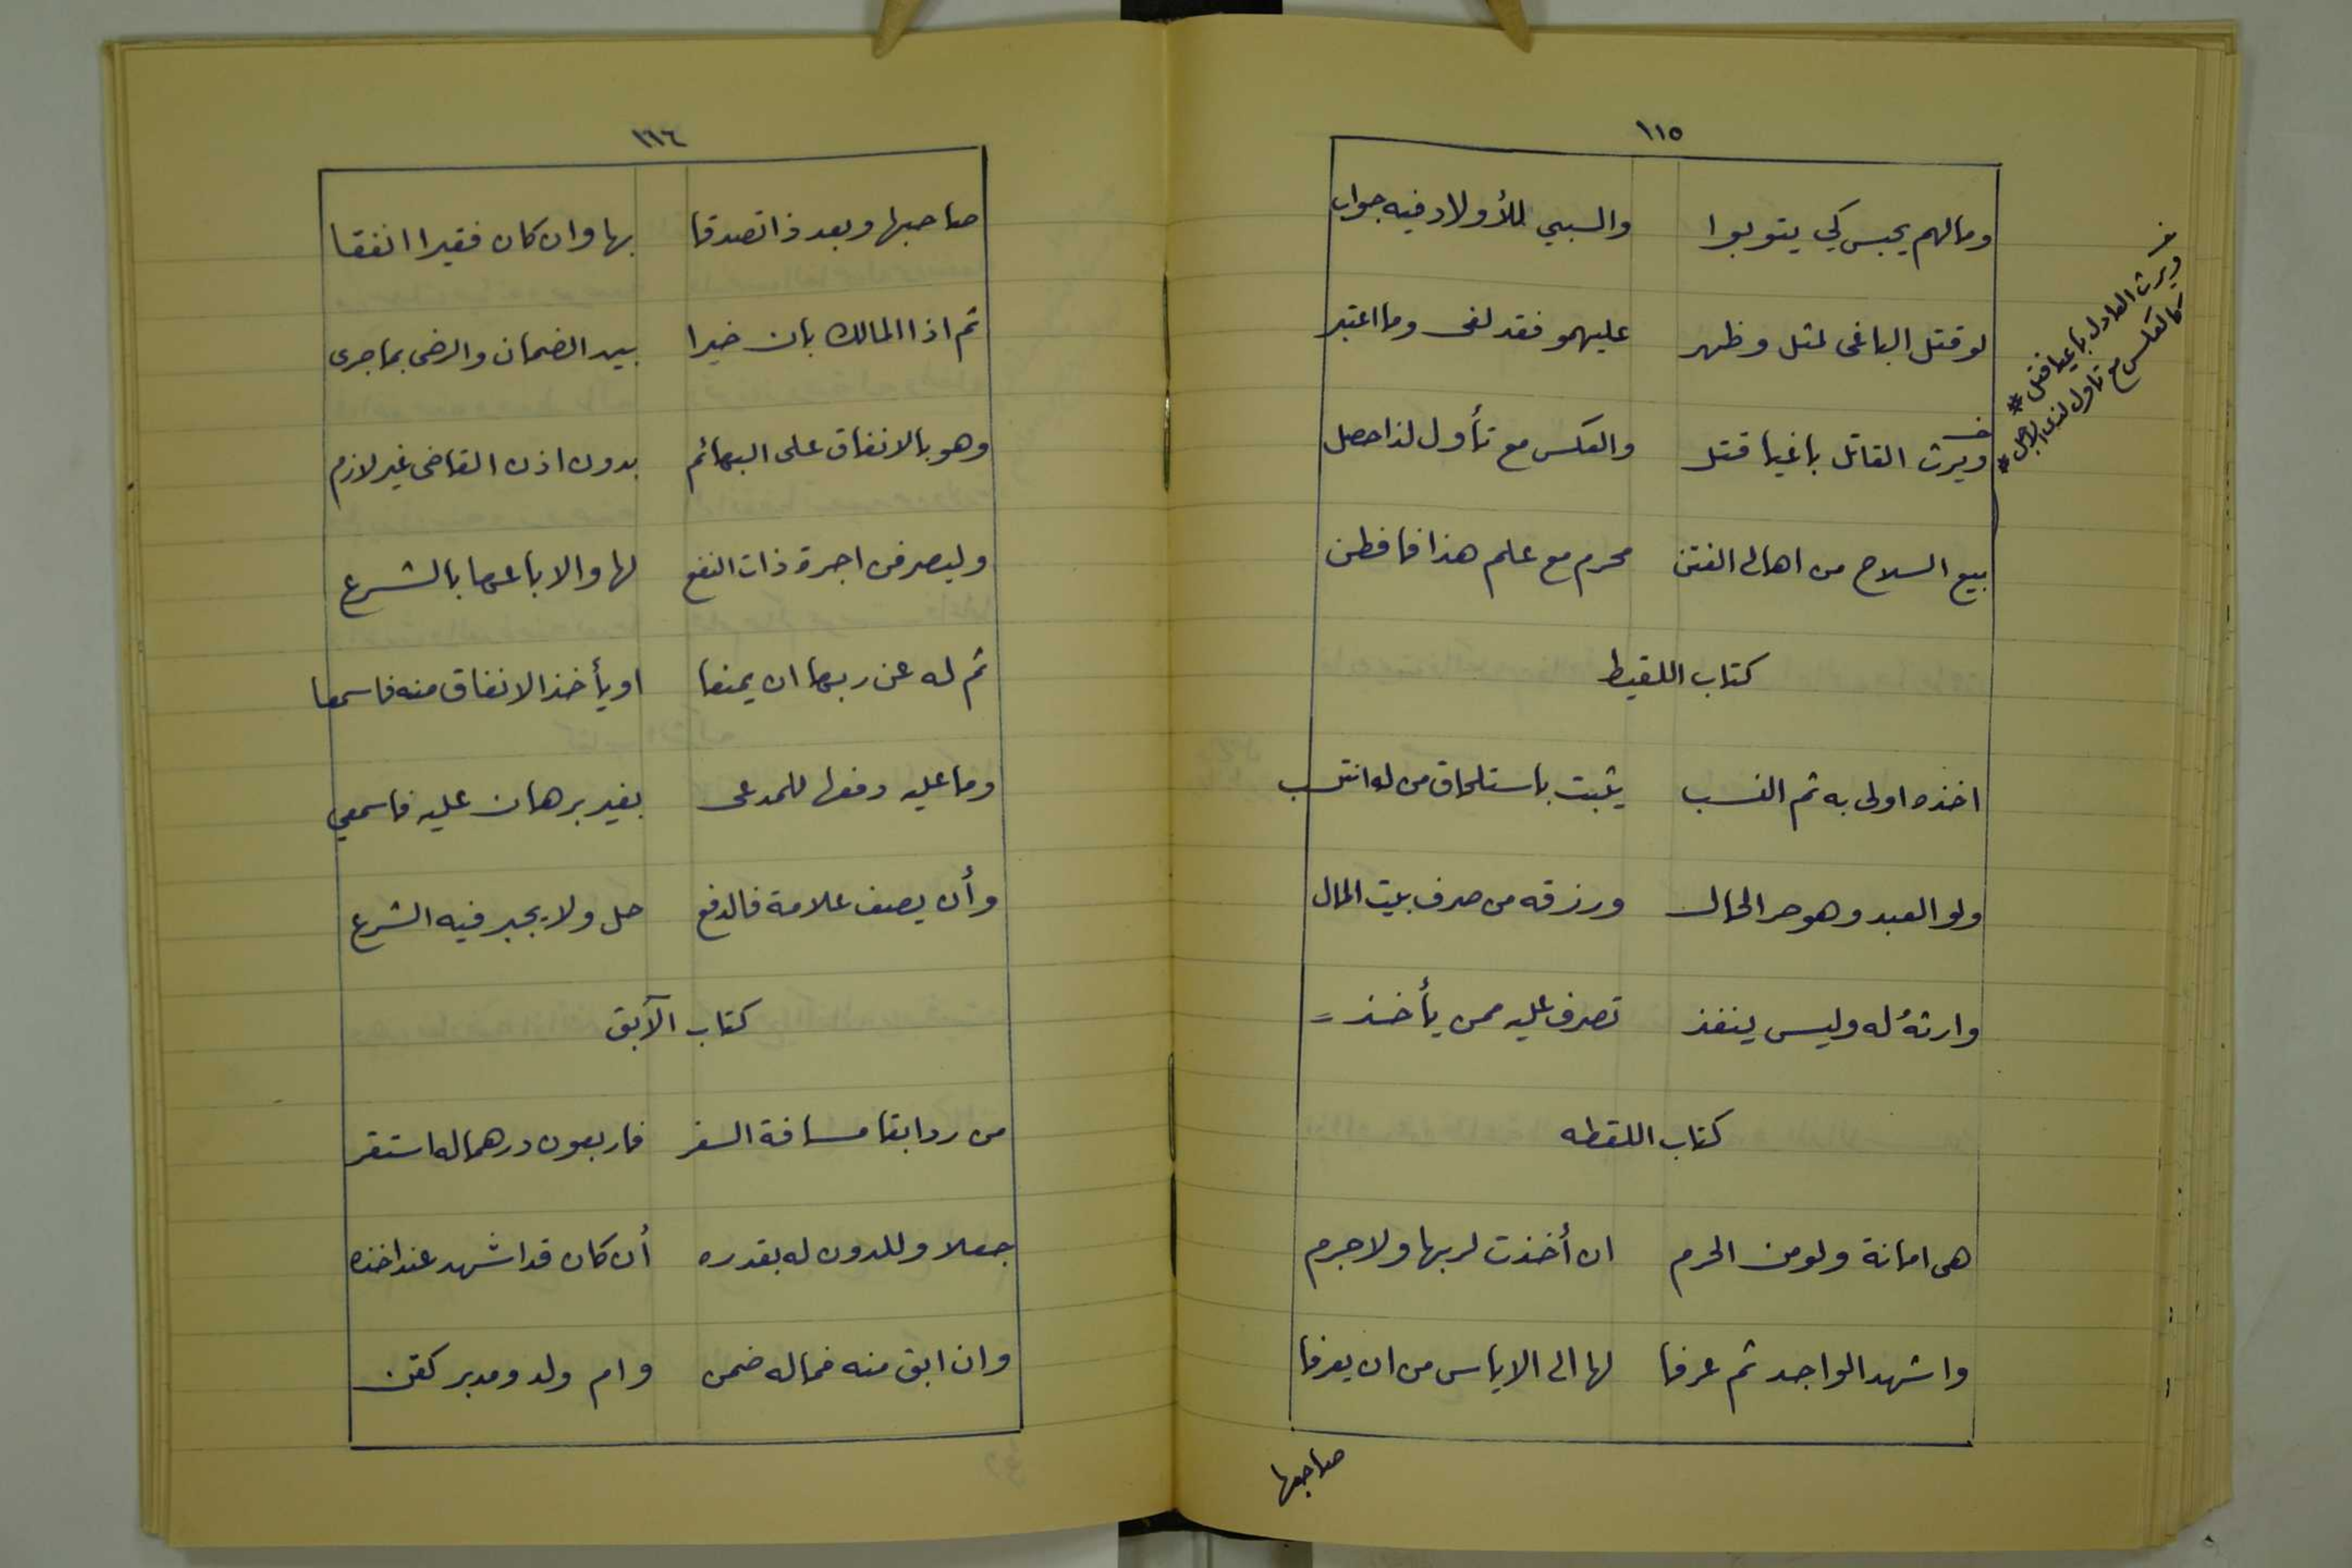 ١١٥
ومالهم يحبس كي يتوبوا والسبي للأولاد فيه جواب
لو قتل الباغى مثل وظهر عليهمو فقد لغى وما اعتبر
ويرث القاتل باغيا قتل والعكس مع تأول لذا حصل
خ
ويرث العادل باغيا قتل *
كالعكس مع تاول لذى *
بيع السلاح من اهالى الفتن محرم مع علم هذا فافطن
كتاب اللقيط
اخذه اولى به ثم النسب يثبت باستلحاق من له انتسب
ولو العبد وهو حر الحال ورزقه من صرف بيت المال
وارثهُ له وليس ينفذ تصرف عليه ممن يأخذ =
كتاب اللقطه
هى امانة ولو من الحرم ان أخذت لربها ولا جرم
واشهد الواجد ثم عرفا لها الى الاياس من ان يعرفا
صاحبها
١١٦
صاحبها وبعد ذا تصدقا بها وان كان فقيرا انفقا
ثم اذا المالك بان خيرا بيد الضمان والرضى بما جرى
وهو بالانفاق على البهائم بدون اذن القاضى غير لازم
وليصرفن اجرة ذات النفع لها والا باعها بالشرع
ثم له عن ربها ان يمنعا او يأخذ الانفاق منه فاسمعا
وما عليه دفعها للمدعى بغير برهان عليه فاسمعي
وأن يصف علامة فالدفع حل ولا يجبر فيه الشرع
كتاب الآبق
من رد ابقا مسافة السفر فاربعون درهما له استقر
جعلا وللدون له بقدره أن كان قد اشهد عند اخذه
وان ابق منه فماله ضمن وام ولد ومدبر كقن